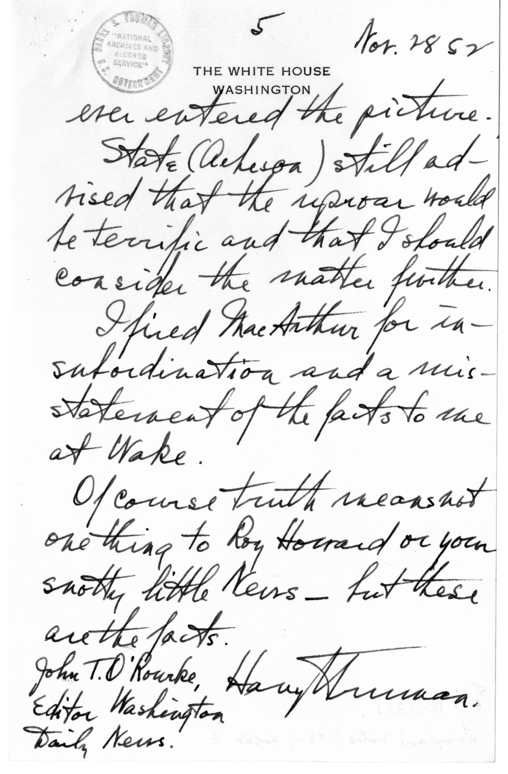 5
Nov. 28 52
HARRY S. TRUMAN LIBRARY
"NATIONAL
ARCHIVES AND
RECORDS
SERVICE"
U.S. GOVERNMENT
THE WHITE HOUSE
WASHINGTON
ever entered the picture.
State (Acheson) still ad-
vised that the uproar would
be terrific and that I should
consider the matter further.
I fired MacArthur for in-
subordination and a mis-
statement of the facts to me
at Wake.
Of course truth means not
one thing to Roy Howard or your
snotty little News – but these
are the facts.
Harry Truman.
John T. O'Rourke,
Editor Washington
Daily News.